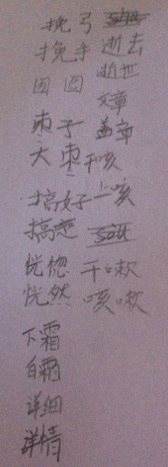 挽弓
挽手 逝去
团圆 逝世
文章
枣子 盖章
大枣 干咳
搞好 一咳
搞定
恍惚 干嗽
恍然 咳嗽
下霜
白霜
详细
详情